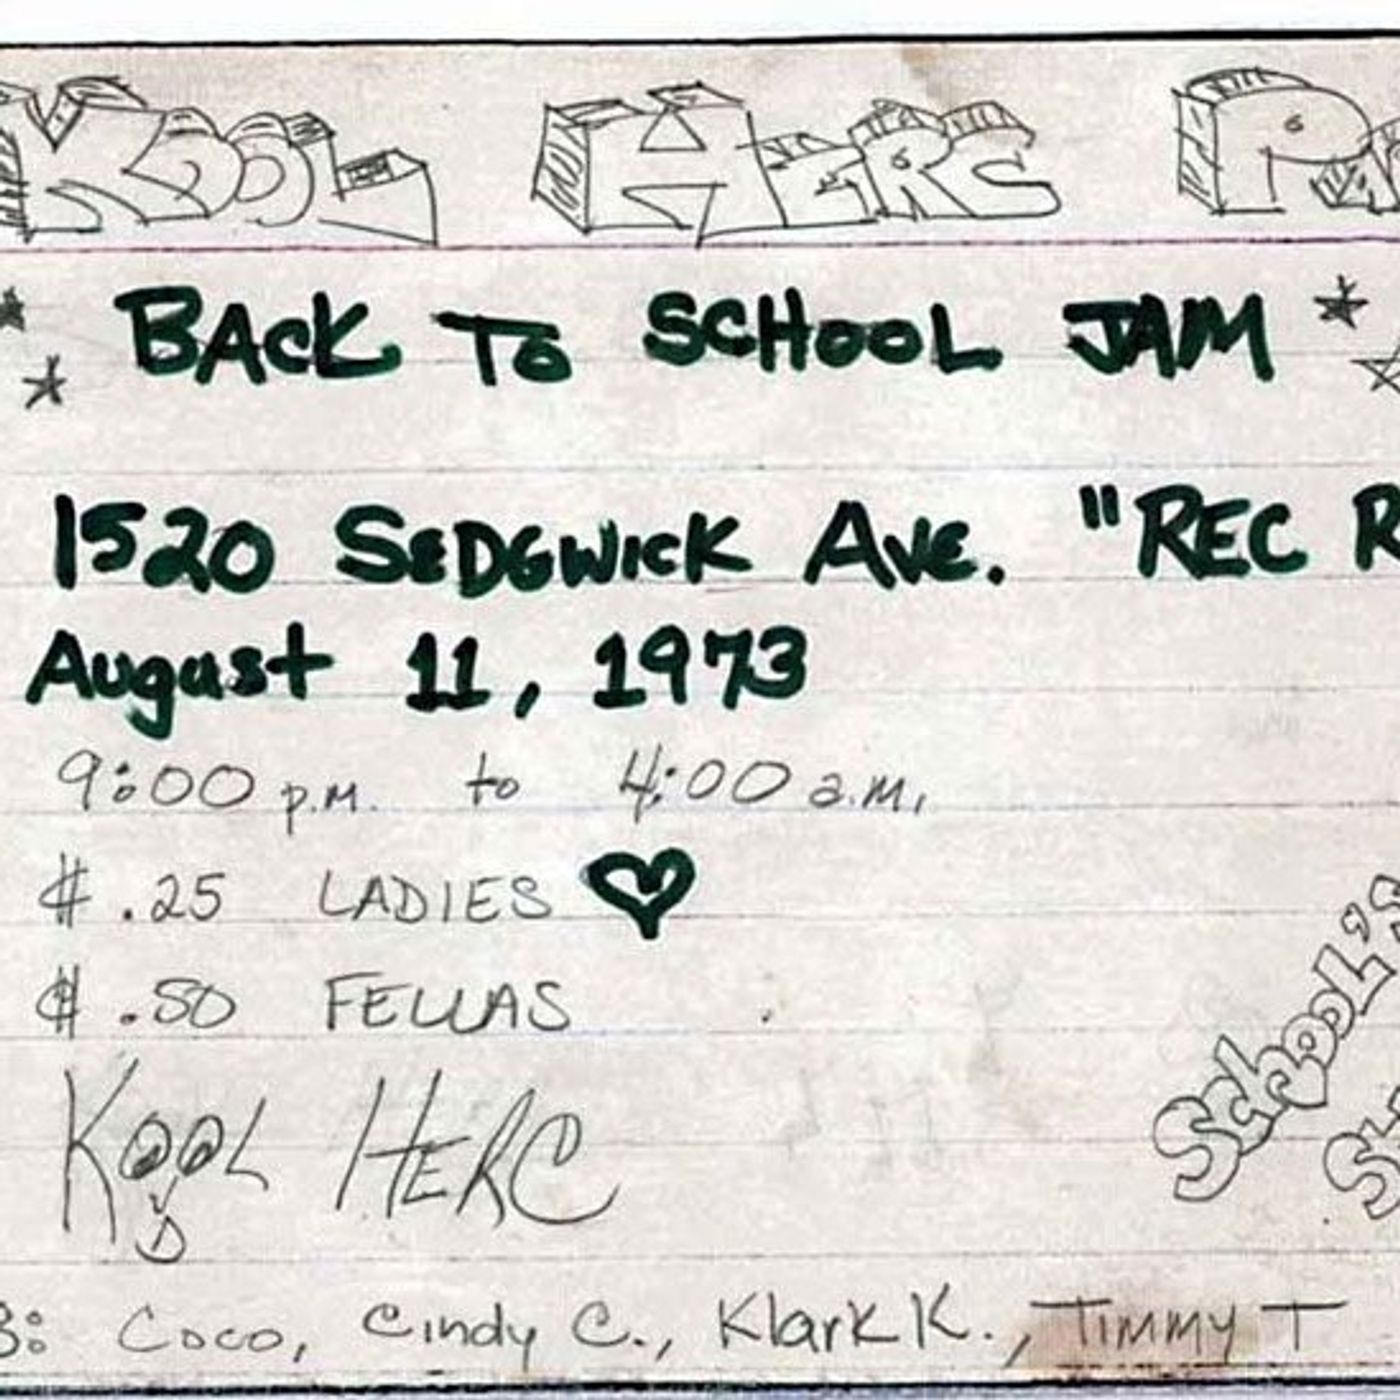 KOOL HERC
BACK TO SCHOOL JAM
1520 SEDGWICK AVE. "REC R
August 11, 1973
9:00 p.m. to 4:00 a.m.
$ .25 LADIES
$ .50 FELLAS
SCHOOL'S
KOOL HERC
D
Coco, Cindy C., KlarkK., Timmy T